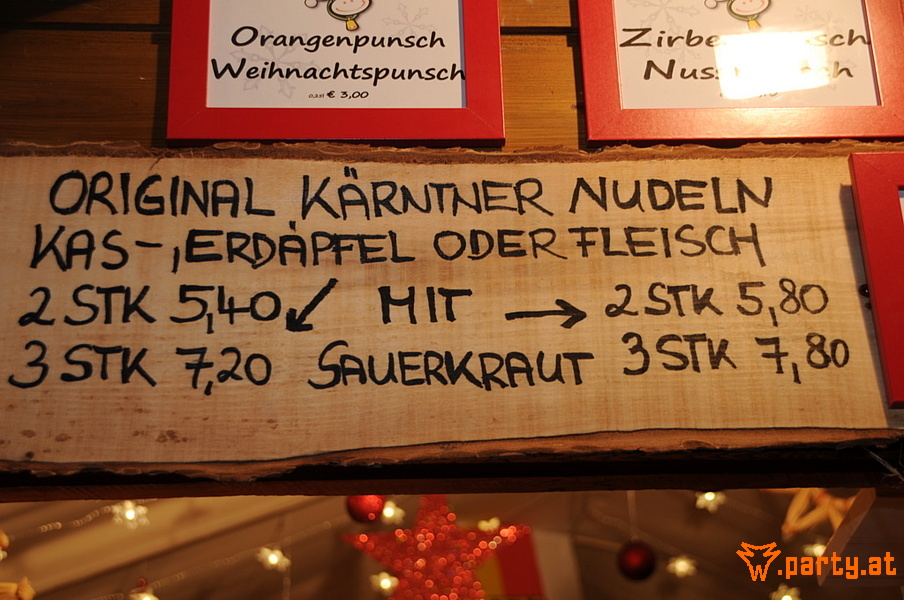 Orangenpunsch
Weihnachtspunsch
0,25l € 3,00
ORIGINAL KÄRNTNER NUDELN
KAS-, ERDÄPFEL ODER FLEISCH
2 STK 5,40 ↙ MIT → 2 STK 5,80
3 STK 7,20 SAUERKRAUT 3 STK 7,80
W.party.at